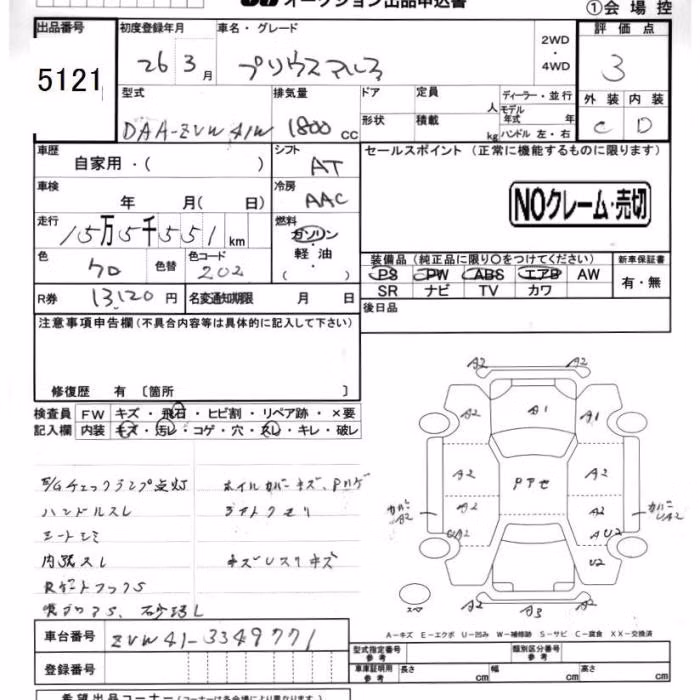 オークション出品申込書
①会場控
出品番号
5121
初度登録年月
26 3 月
車名・グレード
プリウスアルファ
2WD
・
4WD
評価点
3
外装 内装
C D
型式
DAA-ZVW41W
排気量
1800 cc
ドア
形状
定員 人
積載 kg
ディーラー・並行
モデル年式 年
ハンドル 左・右
車歴
自家用・( )
シフト
AT
車検
年 月( 日)
冷房
AAC
走行
15万5千551 km
燃料
ガソリン
・
軽油
・
( )
色
クロ
色替
色コード
202
R券
13120 円
名変通知期限 月 日
セールスポイント (正常に機能するものに限ります)
NOクレーム・売切
装備品(純正品に限り○をつけてください)
PS PW ABS エアB AW
SR ナビ TV カワ
新車保証書
有・無
後日品
注意事項申告欄(不具合内容等は具体的に記入して下さい)
修復歴 有 〔箇所 〕
検査員
記入欄
FW キズ・飛石・ヒビ割・リペア跡・×要
内装 キズ・汚レ・コゲ・穴・スレ・キレ・破レ
E/Gチェックランプ点灯
ホイルカバーキズ、
ハンドルスレ
シートシミ
内張スレ
A2 A2
A2 A1 A1
A2 A2
A2 A2
A2 A3 A2
U2
スマ
A-キズ E-エクボ U-凹み W-補修跡 S-サビ C-腐食 XX-交換済
車台番号
ZVW41-3349771
登録番号
型式指定番号
参考
類別区分番号
参考
車庫証明用
参考
長さ cm
幅 cm
高さ cm
希望出品コーナー(コーナーは各会場により異なります)